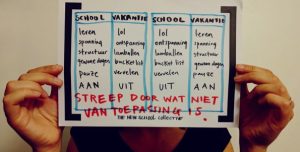 SCHOOL VAKANTIE SCHOOL VAKANTIE
leren lol lol leren
spanning ontspanning ontspanning spanning
structuur lamballen lamballen structuur
gewone dagen bucket list bucket list gewone dagen
pauze vervelen vervelen pauze
AAN UIT UIT AAN
STREEP DOOR WAT NIET
VAN TOEPASSING IS.
THE NEW SCHOOL COLLECTIVE